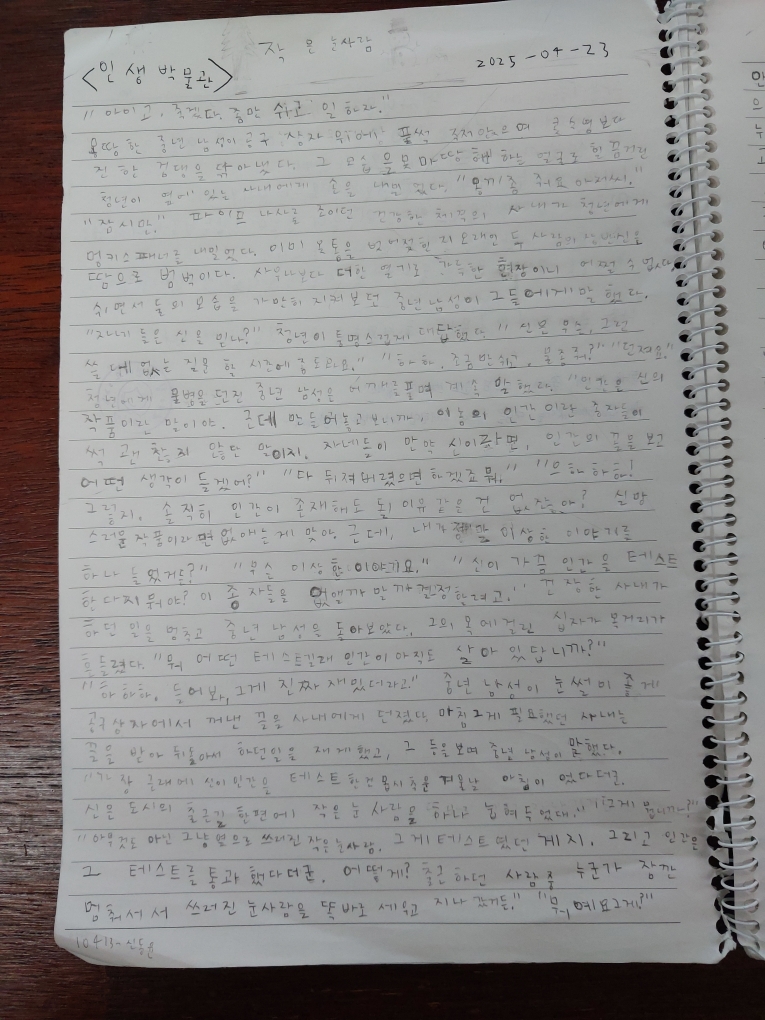 작은 눈사람
<인생박물관> 2025-04-23
"아이고, 죽겠다. 좀만 쉬고 일하자."
용땅한 중년 남성이 공구 상자 위에 풀썩 주저앉으며 콧수염보다
진한 검댕을 닦아냈다. 그 모습을 못마땅해 하는 얼굴로 힐끔거린
청년이 옆에 있는 사내에게 손을 내밀었다. "몽끼좀 줘요 아저씨."
"잠시만." 파이프 나사를 조이던 건강한 체격의 사내가 청년에게
멍키스패너를 내밀었다. 이미 웃통을 벗어젖힌지 오래인 두 사람의 상반신은
땀으로 범벅이다. 사우나보다 더한 열기로 가득한 현장이니 어쩔 수 없다
쉬면서 둘의 모습을 가만히 지켜보던 중년 남성이 그들에게 말했다.
"자네들은 신을 믿나?" 청년이 퉁명스럽게 대답했다. "신은 무슨, 그런
쓸데없는 질문 할 시간에 좀 도와요." "하하, 조금만 쉬고, 물 좀 줘?" "던져요."
청년에게 물병을 던진 중년 남성은 어깨를 풀며 계속 말했다. "인간은 신의
작품이란 말이야. 근데 만들어놓고보니까, 이놈의 인간이란 종자들이
썩 괜찮지 않단 말이지. 자네들이 만약 신이라면, 인간의 꼴을 보고
어떤 생각이 들겠어?" "다 뒤져버렸으면하겠죠 뭐." "으하하하!
그렇지, 솔직히 인간이 존재해도 될 이유 같은 건 없잖아? 실망
스러운 작품이라면 없애는게 맞아. 근데, 내가 이상한 이야기를
하나 들었거든?" "무슨 이상한 이야기요." "신이 가끔 인간을 테스트
한다지 뭐야? 이 종자들을 없앨까 말까 결정하려고." 건장한 사내가
하던 일을 멈추고 중년 남성을 돌아보았다. 그의 목에 걸린 십자가 목걸이가
흔들렸다. "뭐 어떤 테스트길래 인간이 아직도 살아 있답니까?"
"하하하. 들어봐, 그게 진짜 재밌더라고." 중년 남성이 눈썰미 좋게
공구상자에서 꺼낸 끌을 사내에게 던졌다. 마침 그게 필요했던 사내는
끌을 받아 뒤돌아서 하던일을 재개했고, 그 등을 보며 중년 남성이 말했다.
"가장 근래에 신이 인간을 테스트 한건 몹시 추운 겨울날 아침이었다더군.
신은 도시의 출근길 한편에 작은 눈사람을 하나 눕혀두었대." "그게 뭡니까?"
"아무것도 아닌 그냥 옆으로 쓰러진 작은눈사람. 그게 테스트였던 게지. 그리고 인간은
그 테스트를 통과 했다더군. 어떻게? 출근하던 사람중 누군가 잠깐
멈춰서서 쓰러진 눈사람을 똑바로 세우고 지나갔거든." "뭐예요그게?"